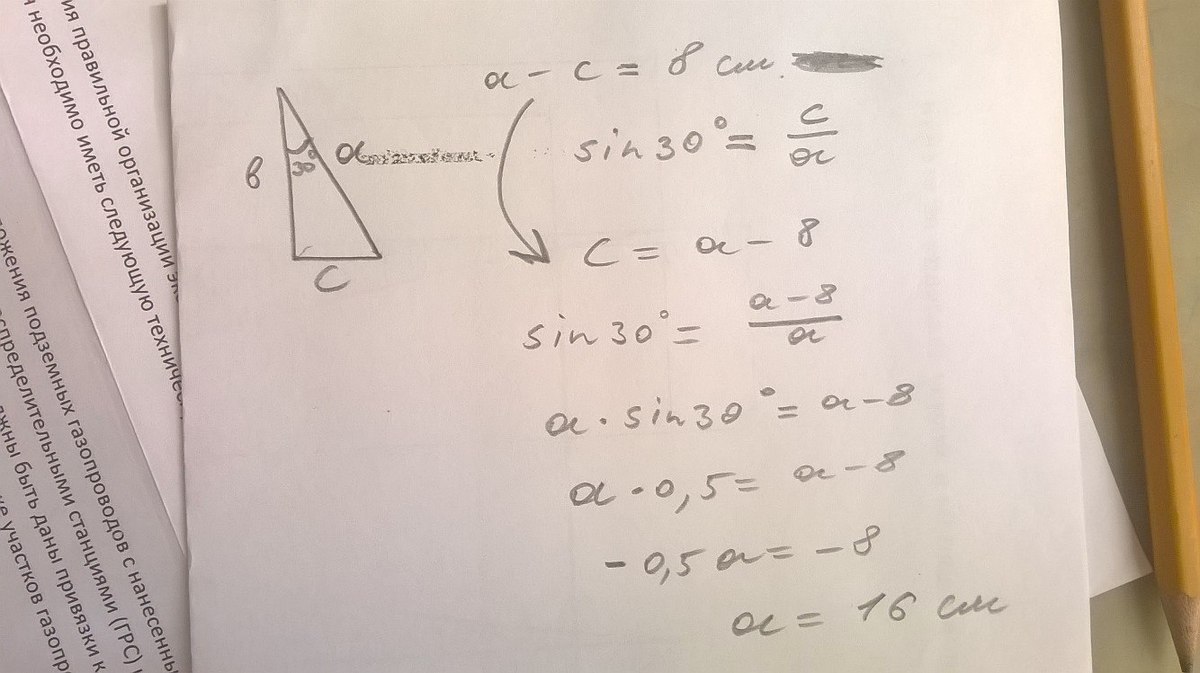 ия правильной организации
необходимо иметь следующую техничес
ожения подземных газопроводов с нанесенны
спределительными станциями (ГРС)
жны быть даны привязки к
участков газопр
a - c = 8 см.
sin 30° = c/a
в
30°
a
c
c = a - 8
sin 30° = (a - 8)/a
a · sin 30° = a - 8
a · 0,5 = a - 8
- 0,5 a = - 8
a = 16 см